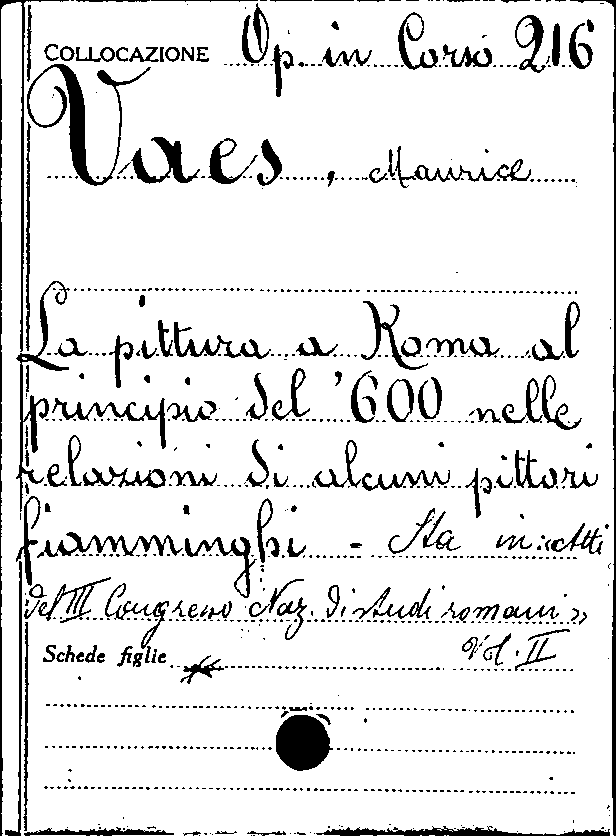 COLLOCAZIONE Op. in Corso 216
Vaes, Maurice
La pittura a Roma al
principio del '600 nelle
relazioni di alcuni pittori
fiamminghi - Sta in: «Atti
del III Congresso Naz. di studi romani»
Schede figlie Vol. II